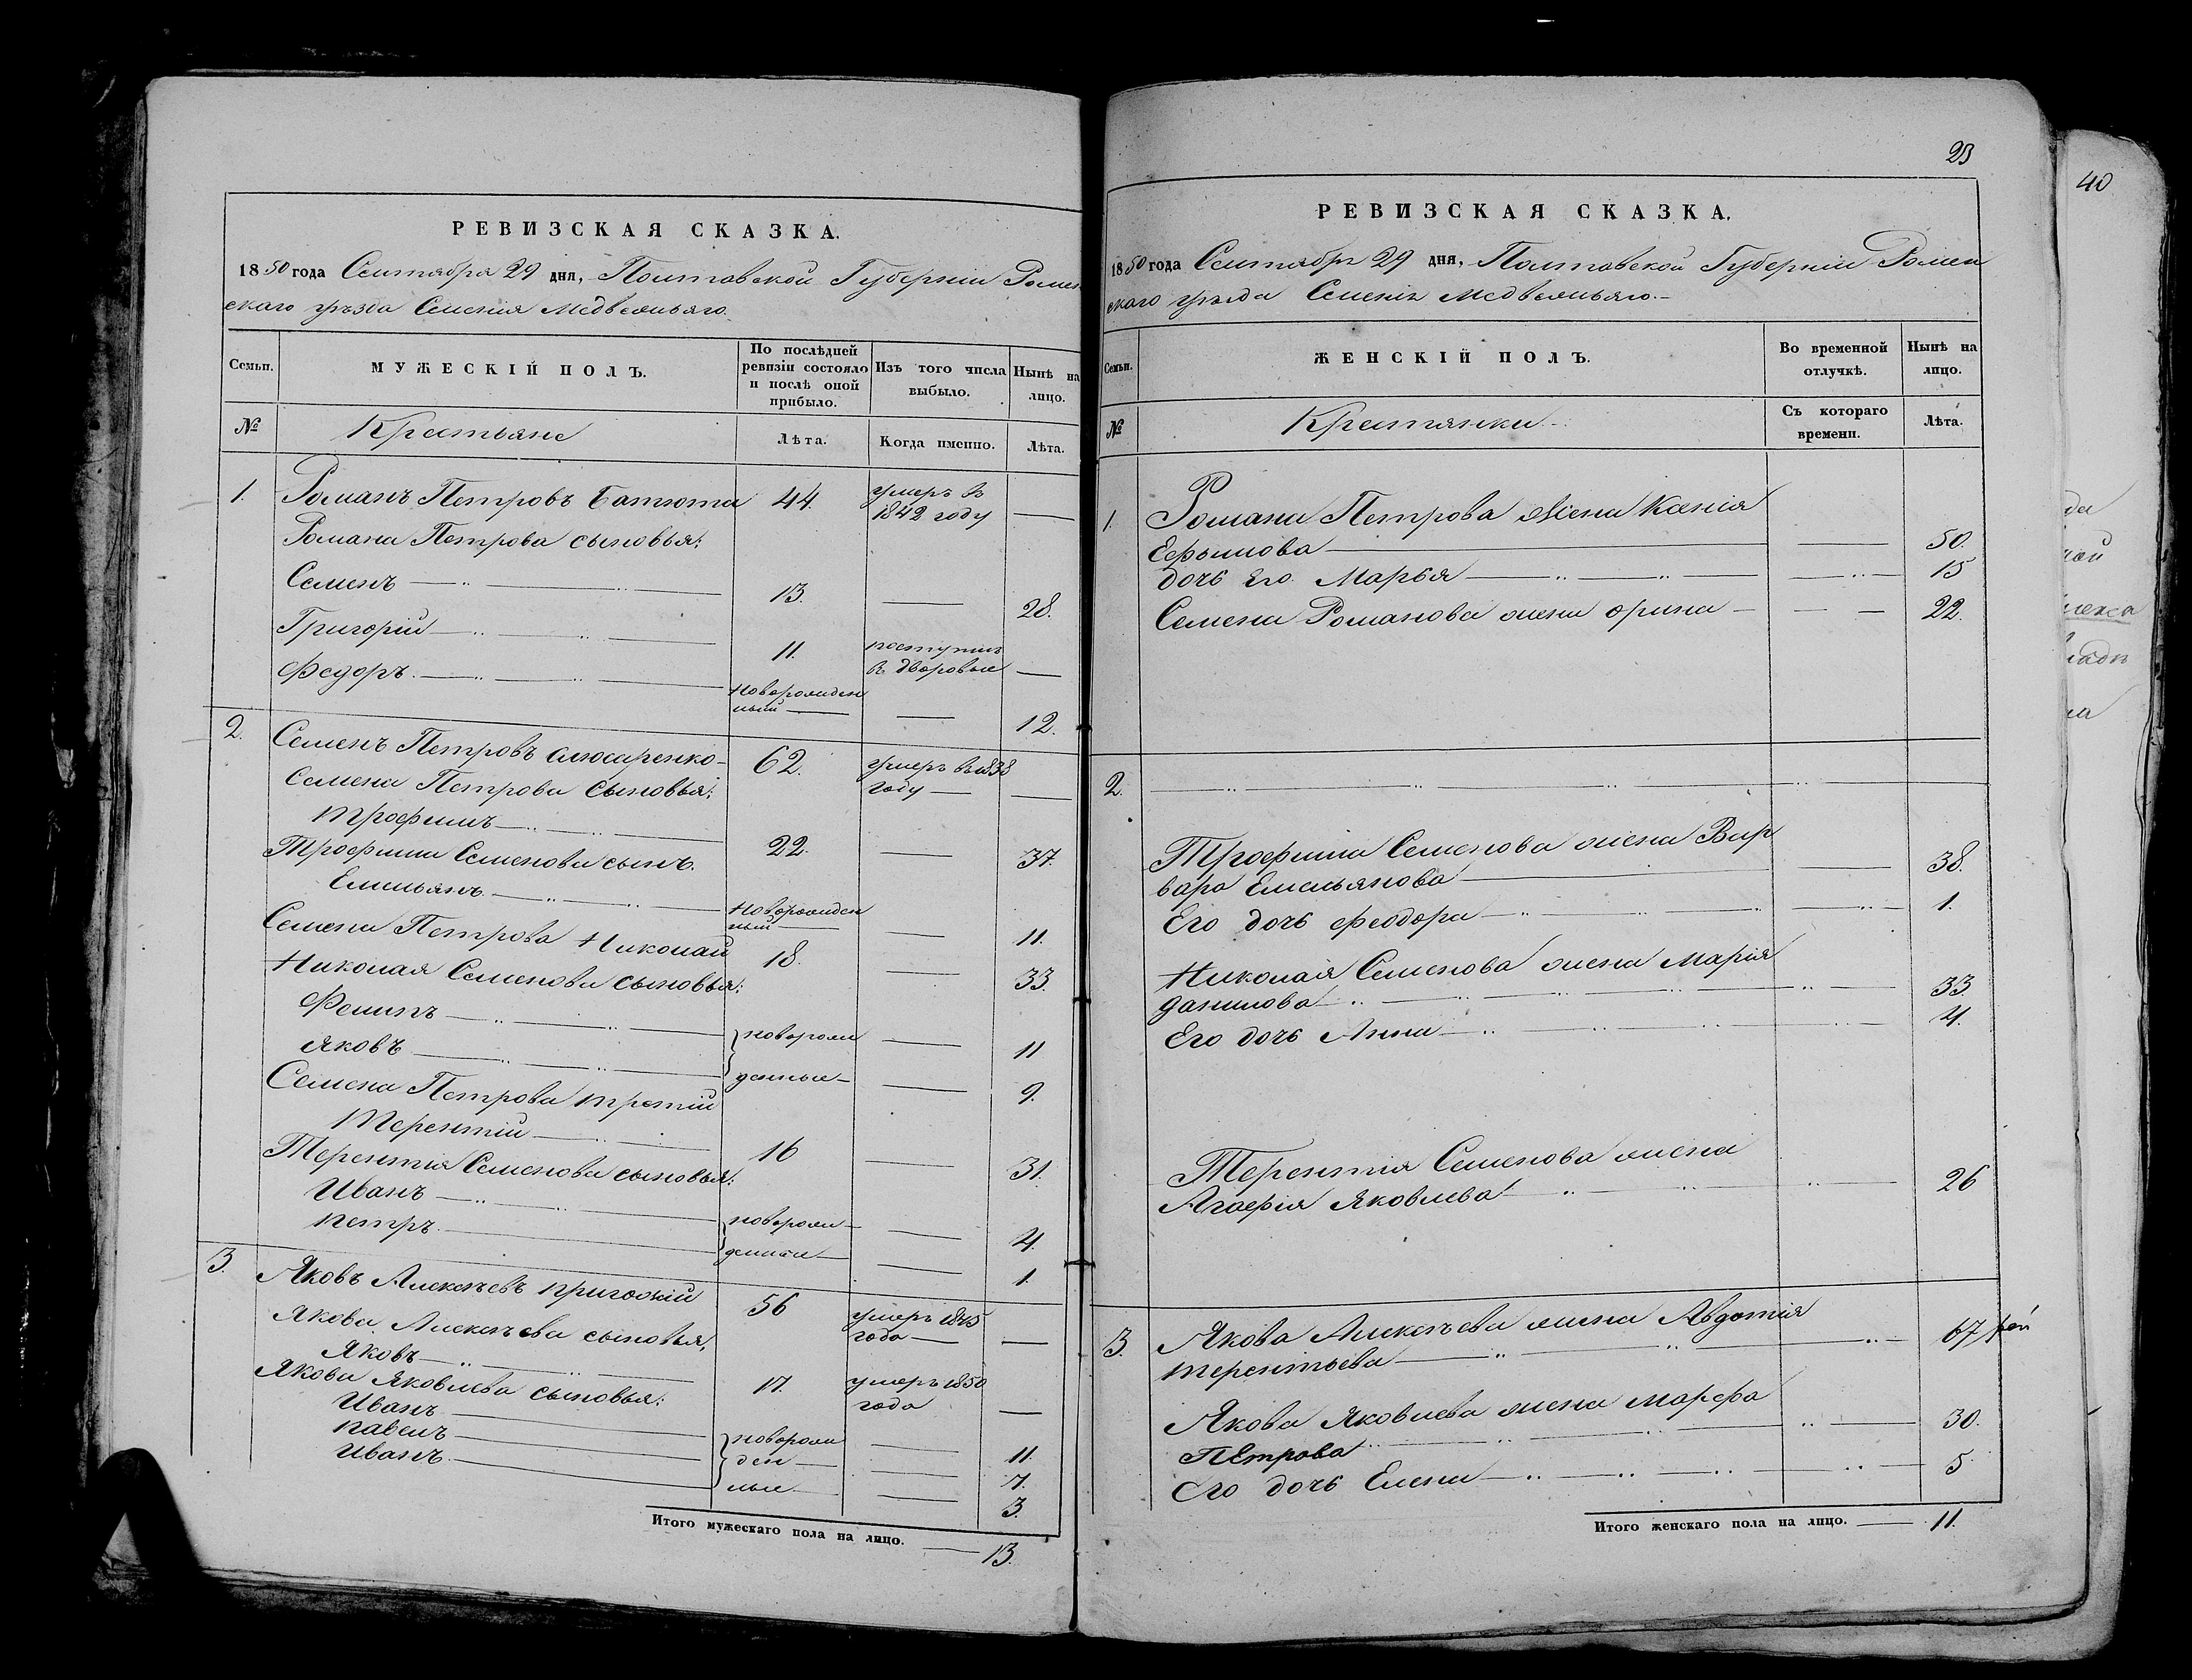 РЕВИЗСКАЯ СКАЗКА.
1850 года Сентября 29 дня, Полтавской Губерніи Ромен
скаго уѣзда Селенія Медвежьяго.
Семьи.
МУЖЕСКІЙ ПОЛЪ.
По послѣдней ревизіи состояло и послѣ оной прибыло.
Изъ того числа выбыло.
Нынѣ на лицо.
№
Крестьяне
Лѣта.
Когда именно.
Лѣта.
1. Романъ Петровъ Батюта 44. умеръ в 1842 году —
Романа Петрова сыновья:
Семенъ 13. — 28.
Григорій 11. поступилъ в дворовые —
Федоръ новорожден ный — 12.
2. Семенъ Петровъ слюсаренко 62. умеръ в 1838 году —
Семена Петрова сыновья:
Трофимъ 22. — 37.
Трофима Семенова сынъ.
Емельянъ новорожден ный — 11.
Семена Петрова Николай 18. — 33.
Николая Семенова сыновья:
Филипъ новорож — 11
Яковъ денные — 9.
Семена Петрова третій
Терентій 16 — 31.
Терентія Семенова сыновья:
Иванъ новорож — 4.
петръ денные — 1.
3. Яковъ Алексѣевъ 56 умеръ 1845 года —
Якова Алексѣева сыновья,
Яковъ 17. умеръ 1850 года —
Якова Яковлева сыновья:
Иванъ новорож — 11.
павелъ ден — 7.
Иванъ ные — 3.
Итого мужескаго пола на лицо. — 13.
23
РЕВИЗСКАЯ СКАЗКА.
1850 года Сентября 29 дня, Полтавской Губерніи Ромен
скаго уѣзда Селенія Медвежьяго.
Семьи.
ЖЕНСКІЙ ПОЛЪ.
Во временной отлучкѣ.
Нынѣ на лицо.
№
Крестянки
Съ котораго времени.
Лѣта.
1. Романа Петрова жена Ксенія
Ефимова — 50.
дочь его Марья — 15
Семена Романова жена орина — 22.
2.
Трофима Семенова жена Вар
вара Емельянова — 38.
Его дочь Феодора — 1.
Николая Семенова жена Марія
данилова — 33.
Его дочь Анна — 4.
Терентія Семенова жена
Агафія Яковлева — 26
3. Якова Алексѣева жена Авдотія
терентьева — 67
Якова Яковлева жена марфа
Петрова — 30.
Его дочь Елена — 5.
Итого женскаго пола на лицо. — 11.
40